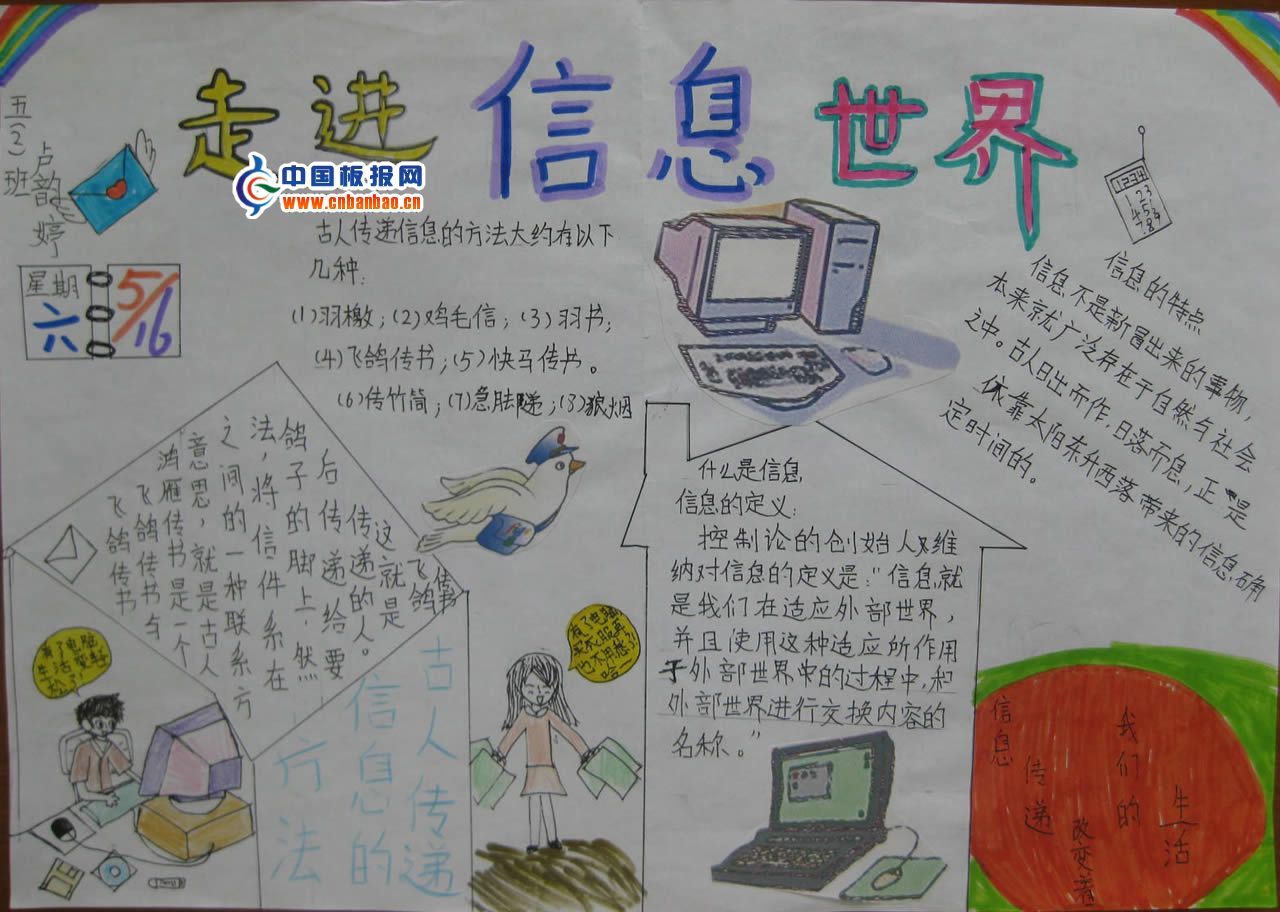 走进信息世界
五(2)班
卢韵婷
中国板报网
www.cnbanbao.cn
星期
六
5/16
古人传递信息的方法大约有以下
几种:
(1)羽檄;(2)鸡毛信;(3)羽书;
(4)飞鸽传书;(5)快马传书。
(6)传竹简;(7)急脚递;(8)狼烟
1234
信息的特点
信息不是新冒出来的事物,
本来就广泛存在于自然与社会
之中。古人日出而作,日落而息,正是
依靠太阳东升西落带来的信息确
定时间的。
什么是信息
信息的定义:
控制论的创始人维
纳对信息的定义是:“信息就
是我们在适应外部世界,
并且使用这种适应所作用
于外部世界的过程中,和
外部世界进行交换内容的
名称。”
飞鸽传书
飞鸽传书与
鸿雁传书是一个
意思,就是古人
之间的一种联系方
法,将信件系在
鸽子的脚上,然
后传递给要
传递的人。
这就是
飞鸽
传书
古人传递
信息的
方法
有了电脑
生活更轻
松了!
有了电脑
买衣服
也不用愁了
哈
信息
传递
改变着
我们的
生活